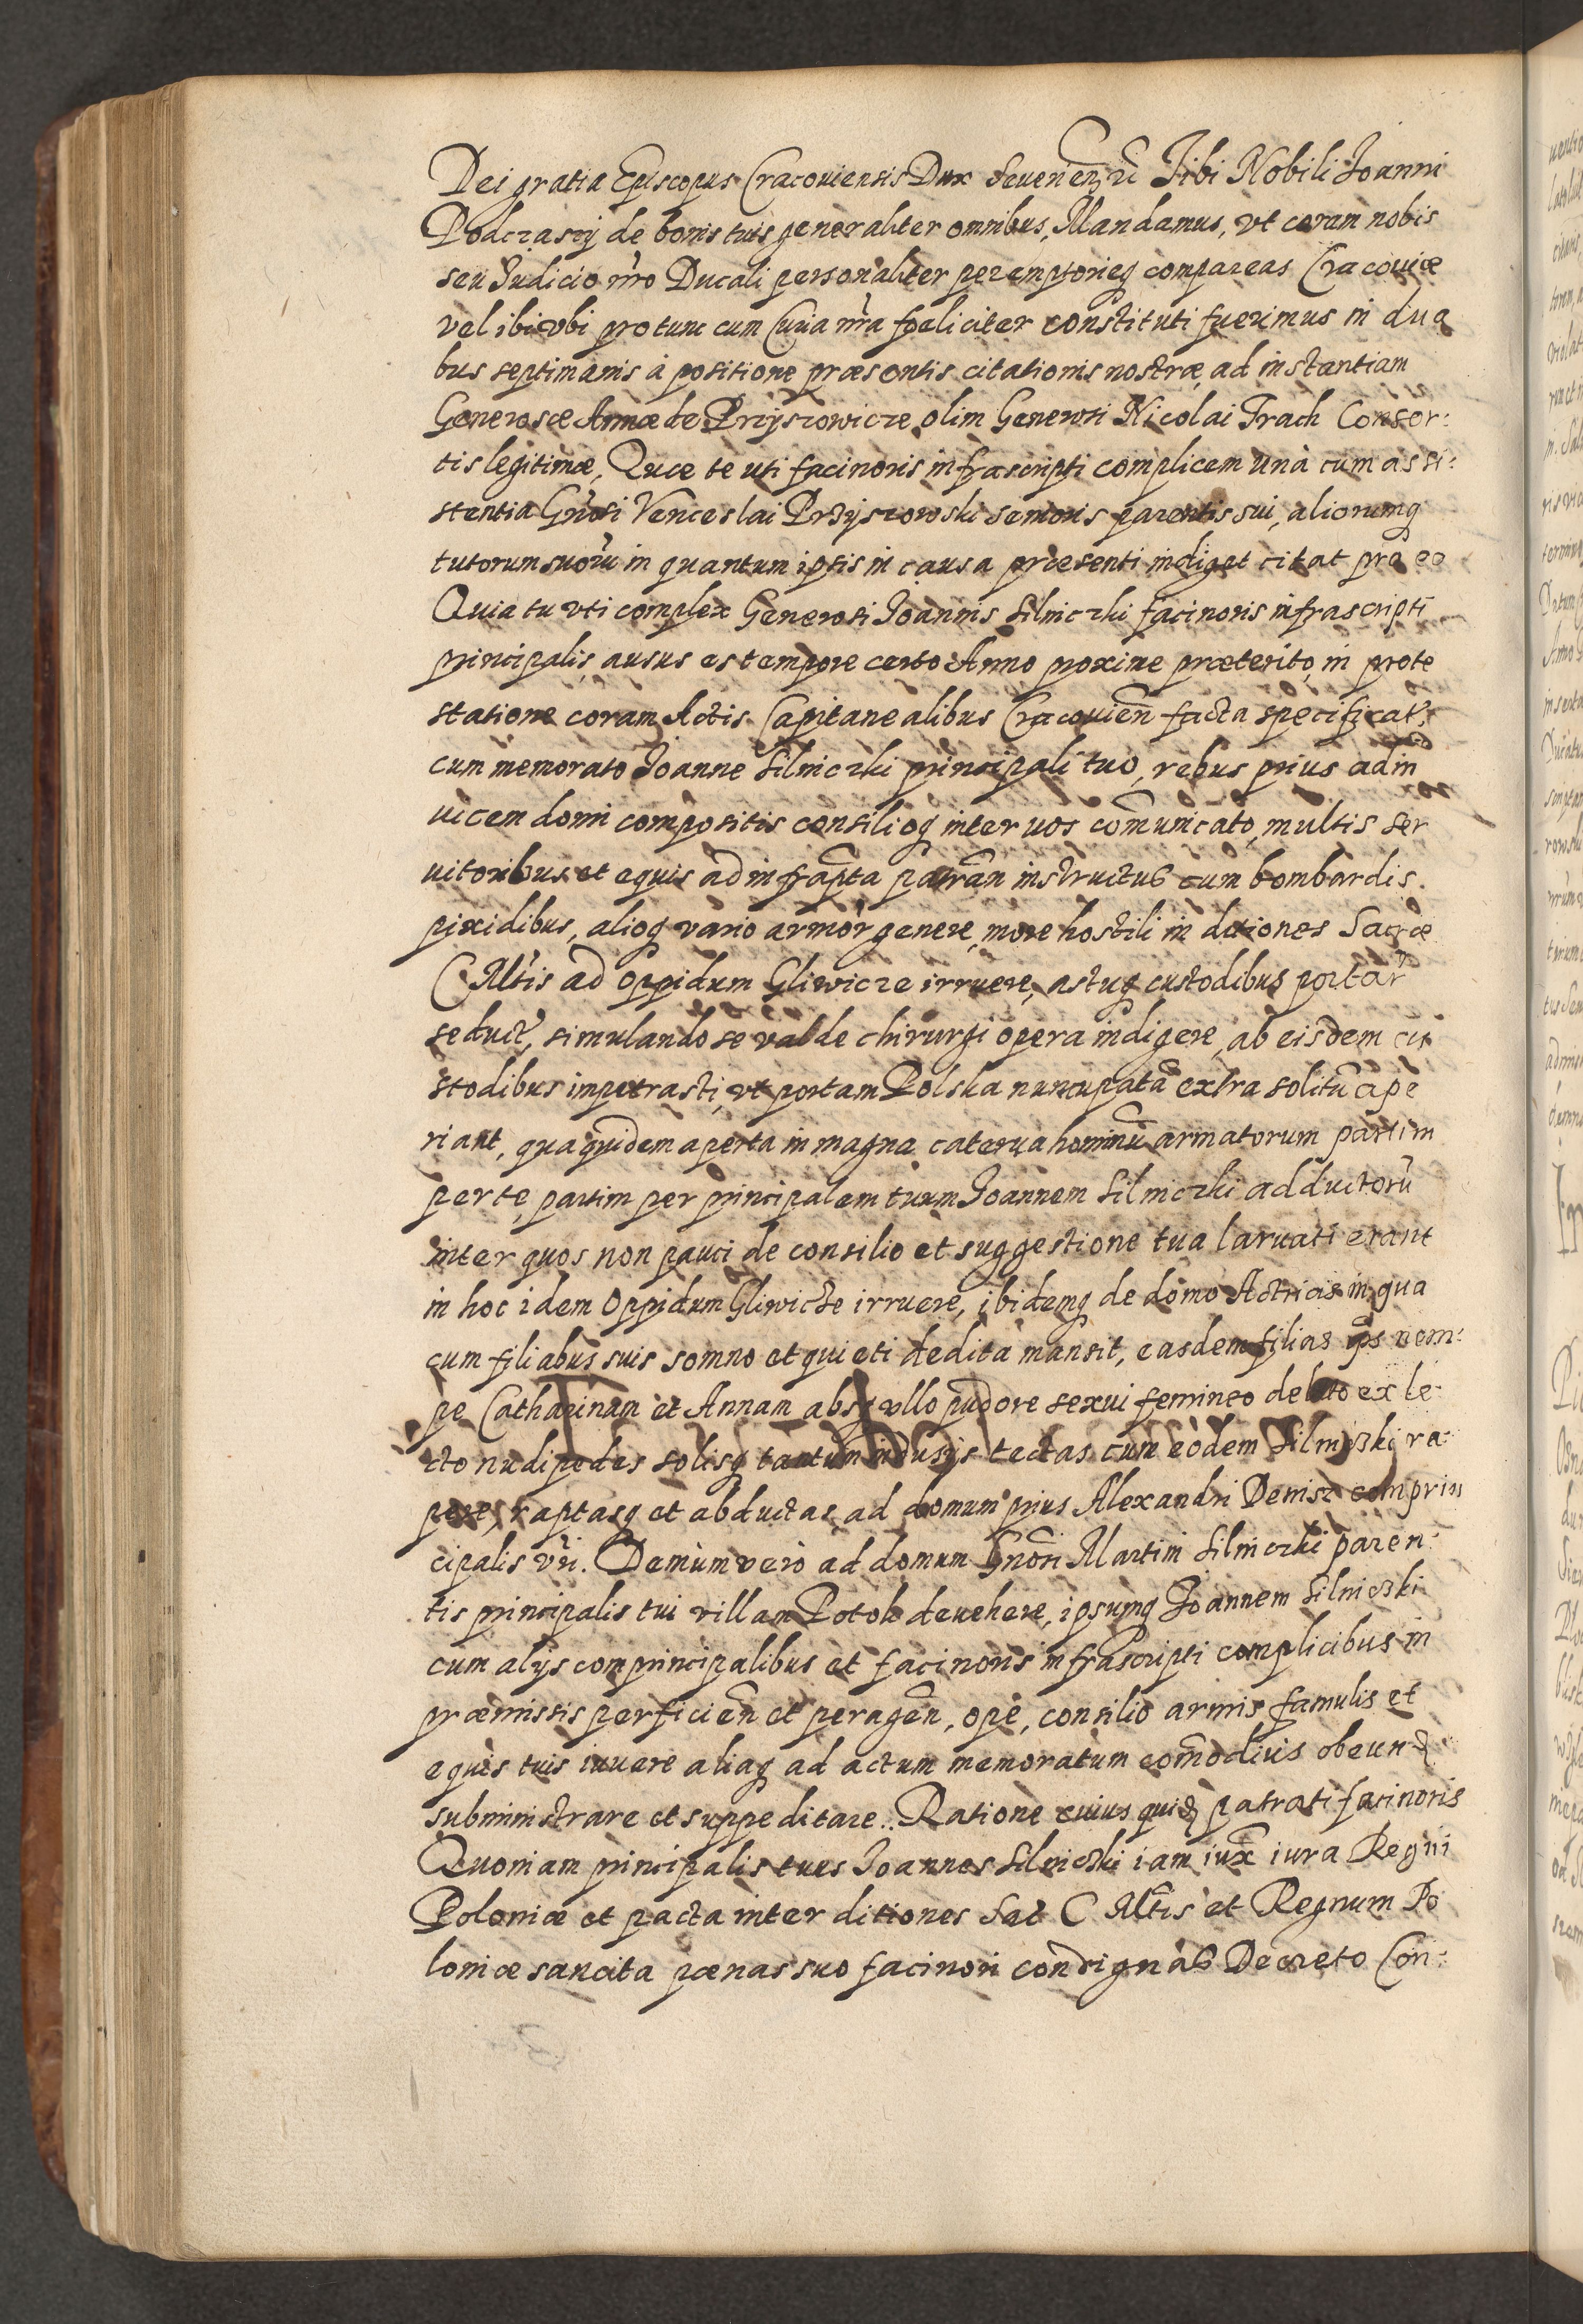 Dei gratia Episcopus Cracouiensis Dux Seueriēn etc̄ Tibi Nobili Joanni
Podczasij de bonis tuis generaliter omnibus, Mandamus, vt coram nobis
seu Judicio nr̃o Ducali personaliter peremptorieq compareas Cracouiæ
vel ibi vbi pro tunc cum Curia nr̃a fœliciter constituti fuerimus in dua
bus septimanis à positione præsentis citationis nostræ, ad instantiam
Generosæ Annæ de Przyszowicze olim Generosi Nicolai Trach Consor:
tis legitimæ, Quæ te uti facinoris infrascripti complicem unà cum assi:
stentia Gn̄rosi Venceslai Przyszowski senioris parentis sui, aliorumq
tutorum suorū in quantum ipsis in causa præsenti indiget citat pro eo
Quia tu vti complex Generosi Joannis Silniczki facinoris infrascripti
principalis, ausus es tempore certo Anno proxime præterito, in prote
statione coram Actis Capitanealibus Cracouien̄ facta specificat,
cum memorato Joanne Silniczki principali tuo, rebus prius adin
uicem domi compositis consilioq inter uos com̄unicato, multis ser
uitoribus et equis ad infrap̄ta patrān instructus cum bombardis
pixidibus, alioq vario armor̃ genere, more hostili in ditiones Sacræ
C Mt̃is ad Oppidum Gliwicze irruere, astuq custodibus portar̃
seduct̃, simulando se valde chirurgi opera indigere, ab eisdem cu
stodibus impetrasti, vt portam Polska nuncupatā extra solitū ape
riant, qua quidem aperta in magna caterua hominū armatorum partim
per te, partim per principalem tuum Joannem Silniczki adductorū
inter quos non pauci de consilio et suggestione tua laruati erant
in hoc idem Oppidum Gliwicze irruere, ibidemq de domo Actricis in qua
cum filiabus suis somno et quieti dedita mansit, easdem filias ip̄s nem:
pe Catharinam et Annam absq vllo pudore sexui femineo debito ex le:
cto nudipedes solisq tantum indusijs tectas cum eodem Silniczki ra:
pere, raptasq et abductas, ad domum prius Alexandri Denisz comprin
cipalis vr̃i. Demùm verò ad domum Gn̄rosi Martini Silniczki paren:
tis principalis tui villam Potok deuehere, ipsumq Joannem Silniczki
cum alijs comprincipalibus et facinoris infrascripti complicibus in
præmissis perficien̄ et peragen̄, ope, consilio armis famulis et
equis tuis iuuere aliaq ad actum memoratum com̄odius obeund
subministrare et suppeditare. Ratione cuius quid patrati facinoris
Quoniam principalis tuus Joannes Silniczki iam iux̄ iura Regni
Poloniæ et pacta inter ditiones Sac̃ C Mt̃is et Regnum Po
loniæ sancita pœnas suo facinori condignas Decreto Con: